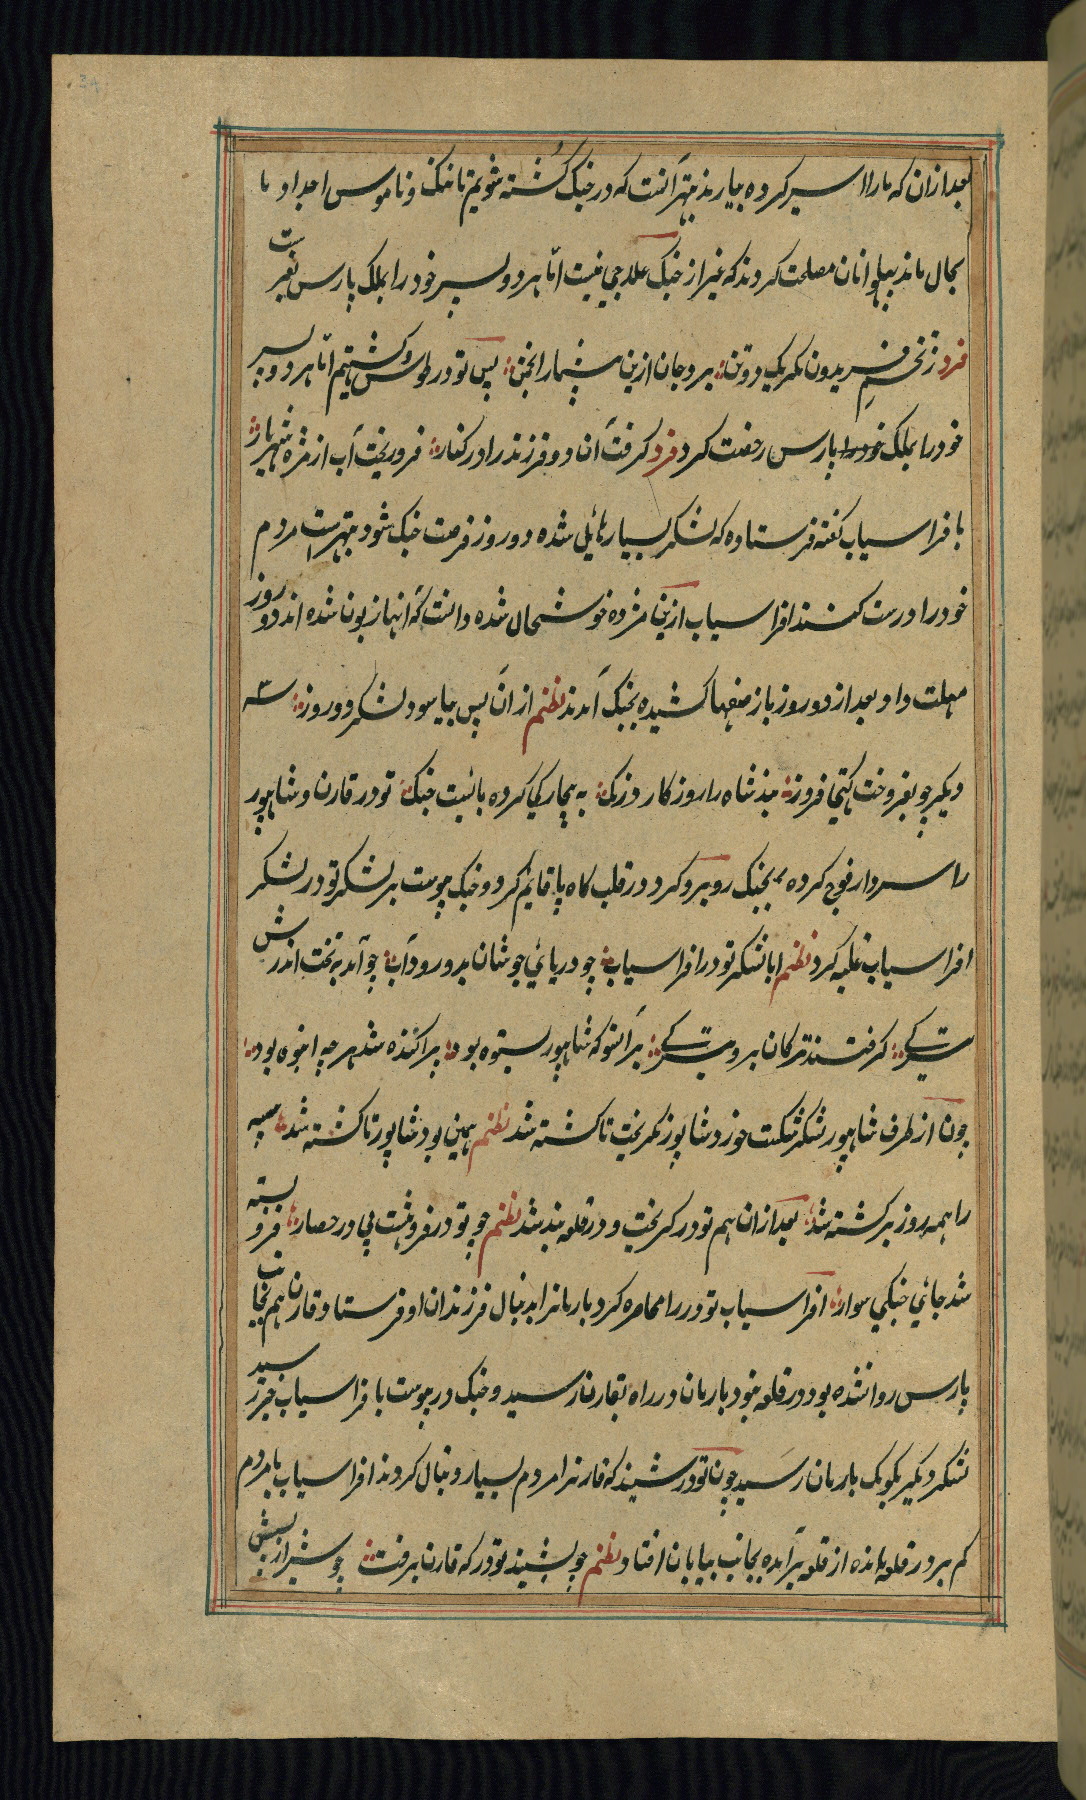 بعد ازان که مارا اسیر کرده بیارند بهتر آنست که در جنک کشته شویم تا ننک و ناموس اجداد ما
بحال ماند پهلوانان مصلحت کردند که غیر از جنک علاجی نیست امّا هر دو پسر خود را بملک پارس بفرست
فرد ز تخم فریدون مکر یک دو تن برد جان ازین بیشمار انجمن پس تودر طوس و کشتهم امّا هر دو پسر
خود را بملک پارس رخصت کرد فرد کرفت آن دو فرزند را در کنار فرو ریخت آب از مژه شهریار
با فراسیاب کفته فرستاده که لشکر بسیار مایل شده دو روز فرصت جنک شود بهتر است مردم
خود را درست کنند افراسیاب ازین مژده خوشحال شده دانست که اینها زبون شده اند دو روز
مهلت داد و بعد از دو روز باز صفها کشیده بجنک آمدند نظم ازان پس بیاسود لشکر دو روز سه
دیکر چو بفروخت کیتی فروز نبد شاه را روزکار درنک به بیچارکی کرده بایست جنک تودر قارن و شاپور
را سردار فوج کرده بجنک روبرو کرد و در قلب کاه پا قایم کرد و جنک پیوست بر لشکر تودر لشکر
افراسیاب غلبه کرد نظم ابا لشکر تودر افراسیاب چو دریای جوشان بد و رود آب چو آمد به تخت اندرش
کرفتند ترکان برو بر آنسو که شاپور بستوه بود پراکنده شد هر چه انبوه بود
چون از طرف شاپور لشکر شکست خورد شاپور نکریخت تا کشته شد نظم همین بود شاپور تا کشته شد سپه
را همه روز برکشته شد بعد ازان هم تودر کریخت و در قلعه بند شد نظم چو تودر فرو هشت پی در حصار فرو بسته
شد جای جنکی سوار افراسیاب تودر را محاصره کرد بارمانرا بدنبال فرزندان او فرستاد قارن هم بجانب
پارس روانشده بود در قلعه نبود بارمان در راه بقارن رسید و جنک در پیوست با فراسیاب خبر رسید
لشکر دیکر بکومک بارمان رسید چون تودر شنید که قارنرا مردم بسیار دنبال کردند افراسیاب با مردم
کم بر در قلعه مانده از قلعه برآمده بجانب بیابان افتاد نظم چو بشنید تودر که قارن برفت چو شیر از پسش